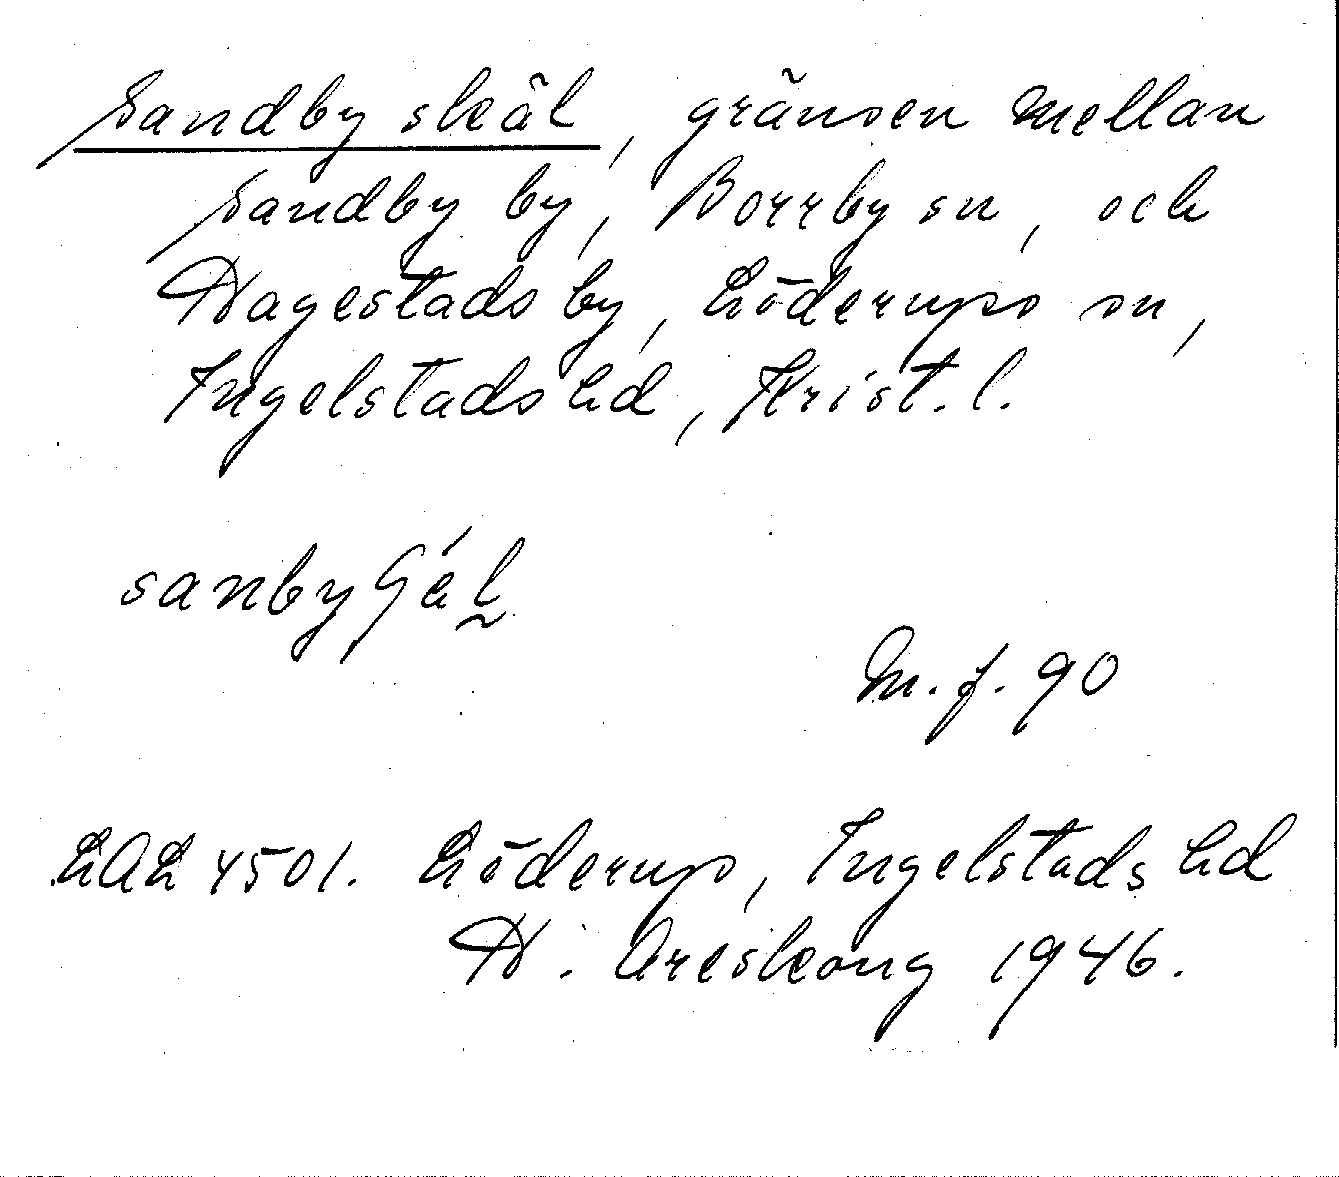 Sandby skäl, gränsen mellan
Sandby by, Borrby sn, och
Hagestads by, Löderups sn,
Ingelstads hd, Krist. l.
M. f. 90
LAL 4501. Löderup, Ingelstads hd
H. Areskoug 1946.